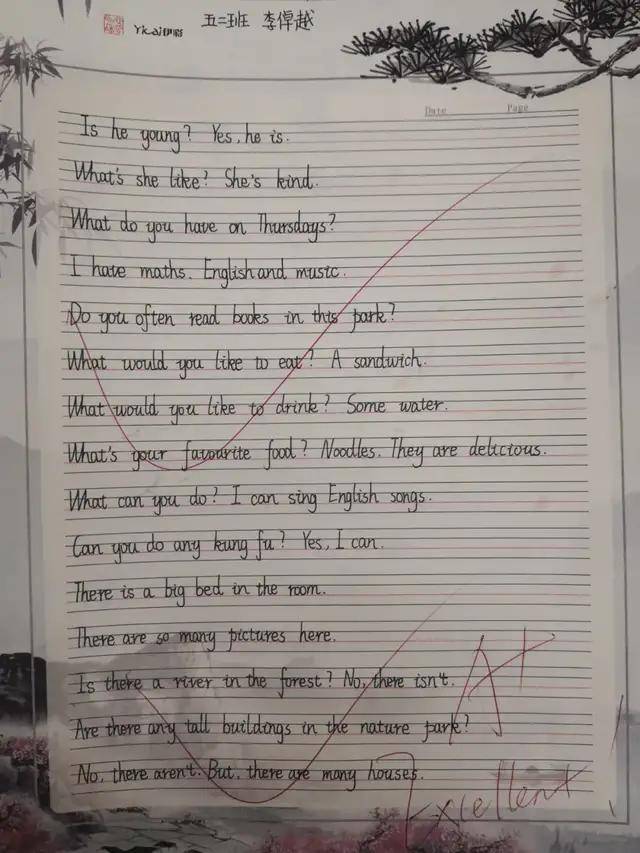 Yicai伊彩 五二班 李偉越
Date Page
Is he young? Yes, he is.
What's she like? She's kind.
What do you have on Thursdays?
I have maths. English and music.
Do you often read books in this park?
What would you like to eat? A sandwich.
What would you like to drink? Some water.
What's your favourite food? Noodles. They are delicious.
What can you do? I can sing English songs.
Can you do any kung fu? Yes, I can.
There is a big bed in the room.
There are so many pictures here.
Is there a river in the forest? No, there isn't.
A+
Are there any tall buildings in the nature park?
No, there aren't. But, there are many houses.
Excellent!